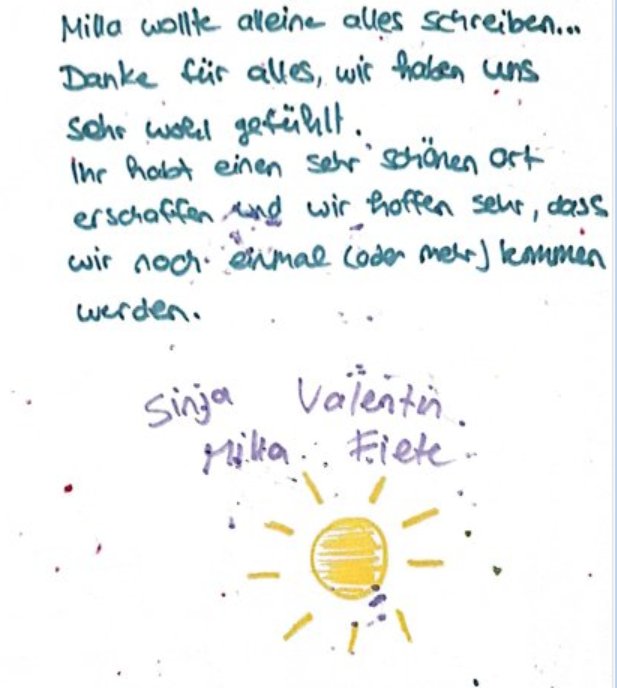 Milla wollte alleine alles schreiben...
Danke für alles, wir haben uns
sehr wohl gefühlt.
Ihr habt einen sehr schönen Ort
erschaffen und wir hoffen sehr, dass
wir noch einmal (oder mehr) kommen
werden.
Sinja Valentin
Milla Fiete